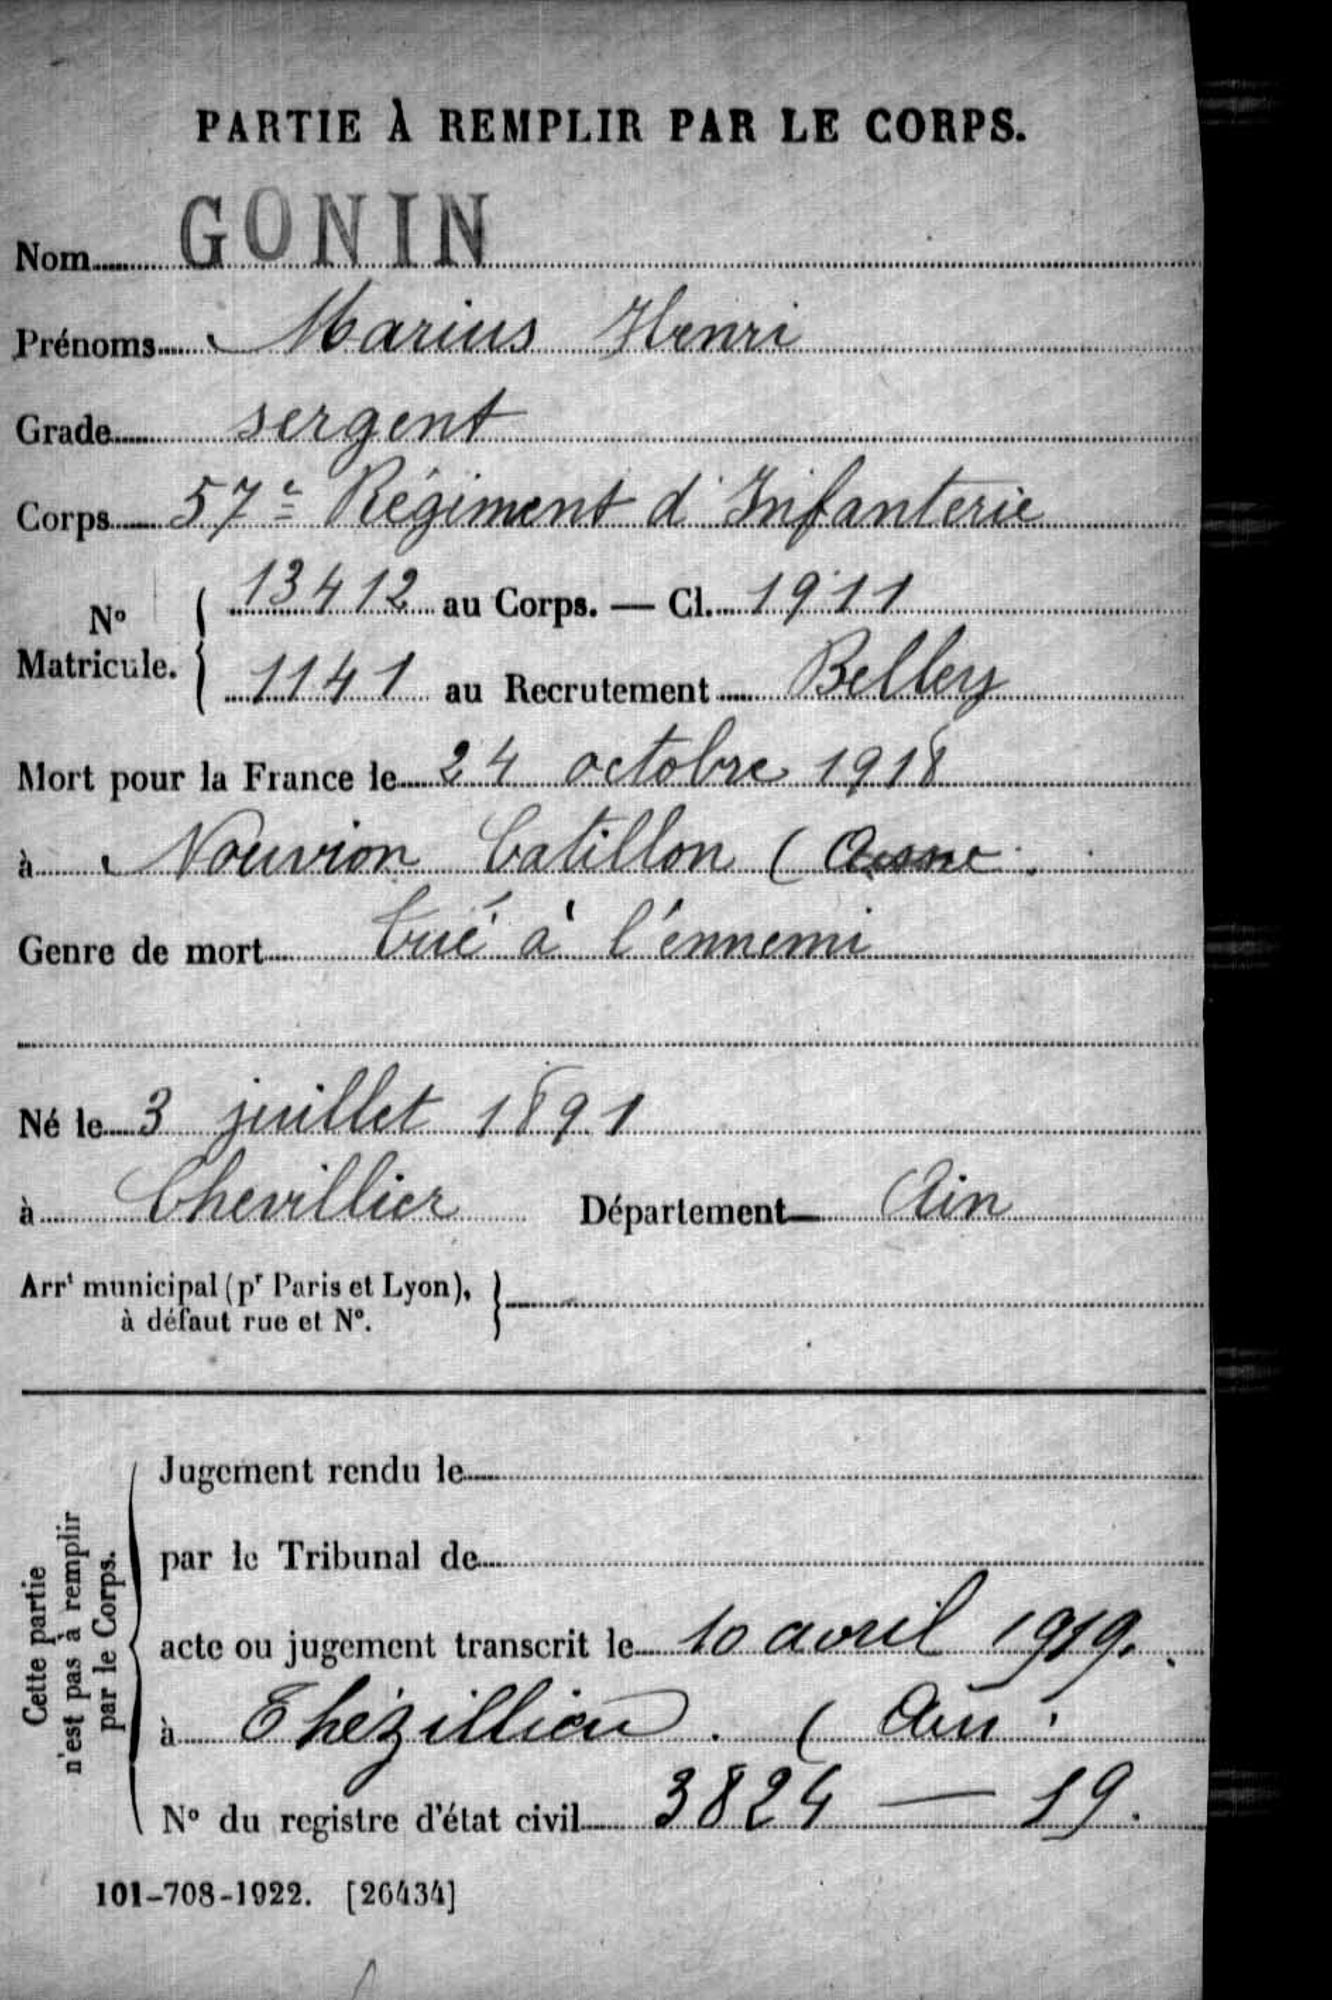 PARTIE À REMPLIR PAR LE CORPS.
Nom GONIN
Prénoms Marius Henri
Grade sergent
Corps 57e Régiment d'Infanterie
N° Matricule. { 13412 au Corps. — Cl. 1911
1141 au Recrutement Belley
Mort pour la France le 24 octobre 1918
à Nouvion Catillon (Aisne
Genre de mort tué à l'énnemi
Né le 3 juillet 1891
à Chevillier Département Ain
Arrt municipal (pr Paris et Lyon), }
à défaut rue et N°.
Cette partie
n'est pas à remplir
par le Corps.
Jugement rendu le
par le Tribunal de
acte ou jugement transcrit le 10 avril 1919.
à Thézillieu. (Ain.
N° du registre d'état civil 3824 — 19.
101-708-1922. [26434]